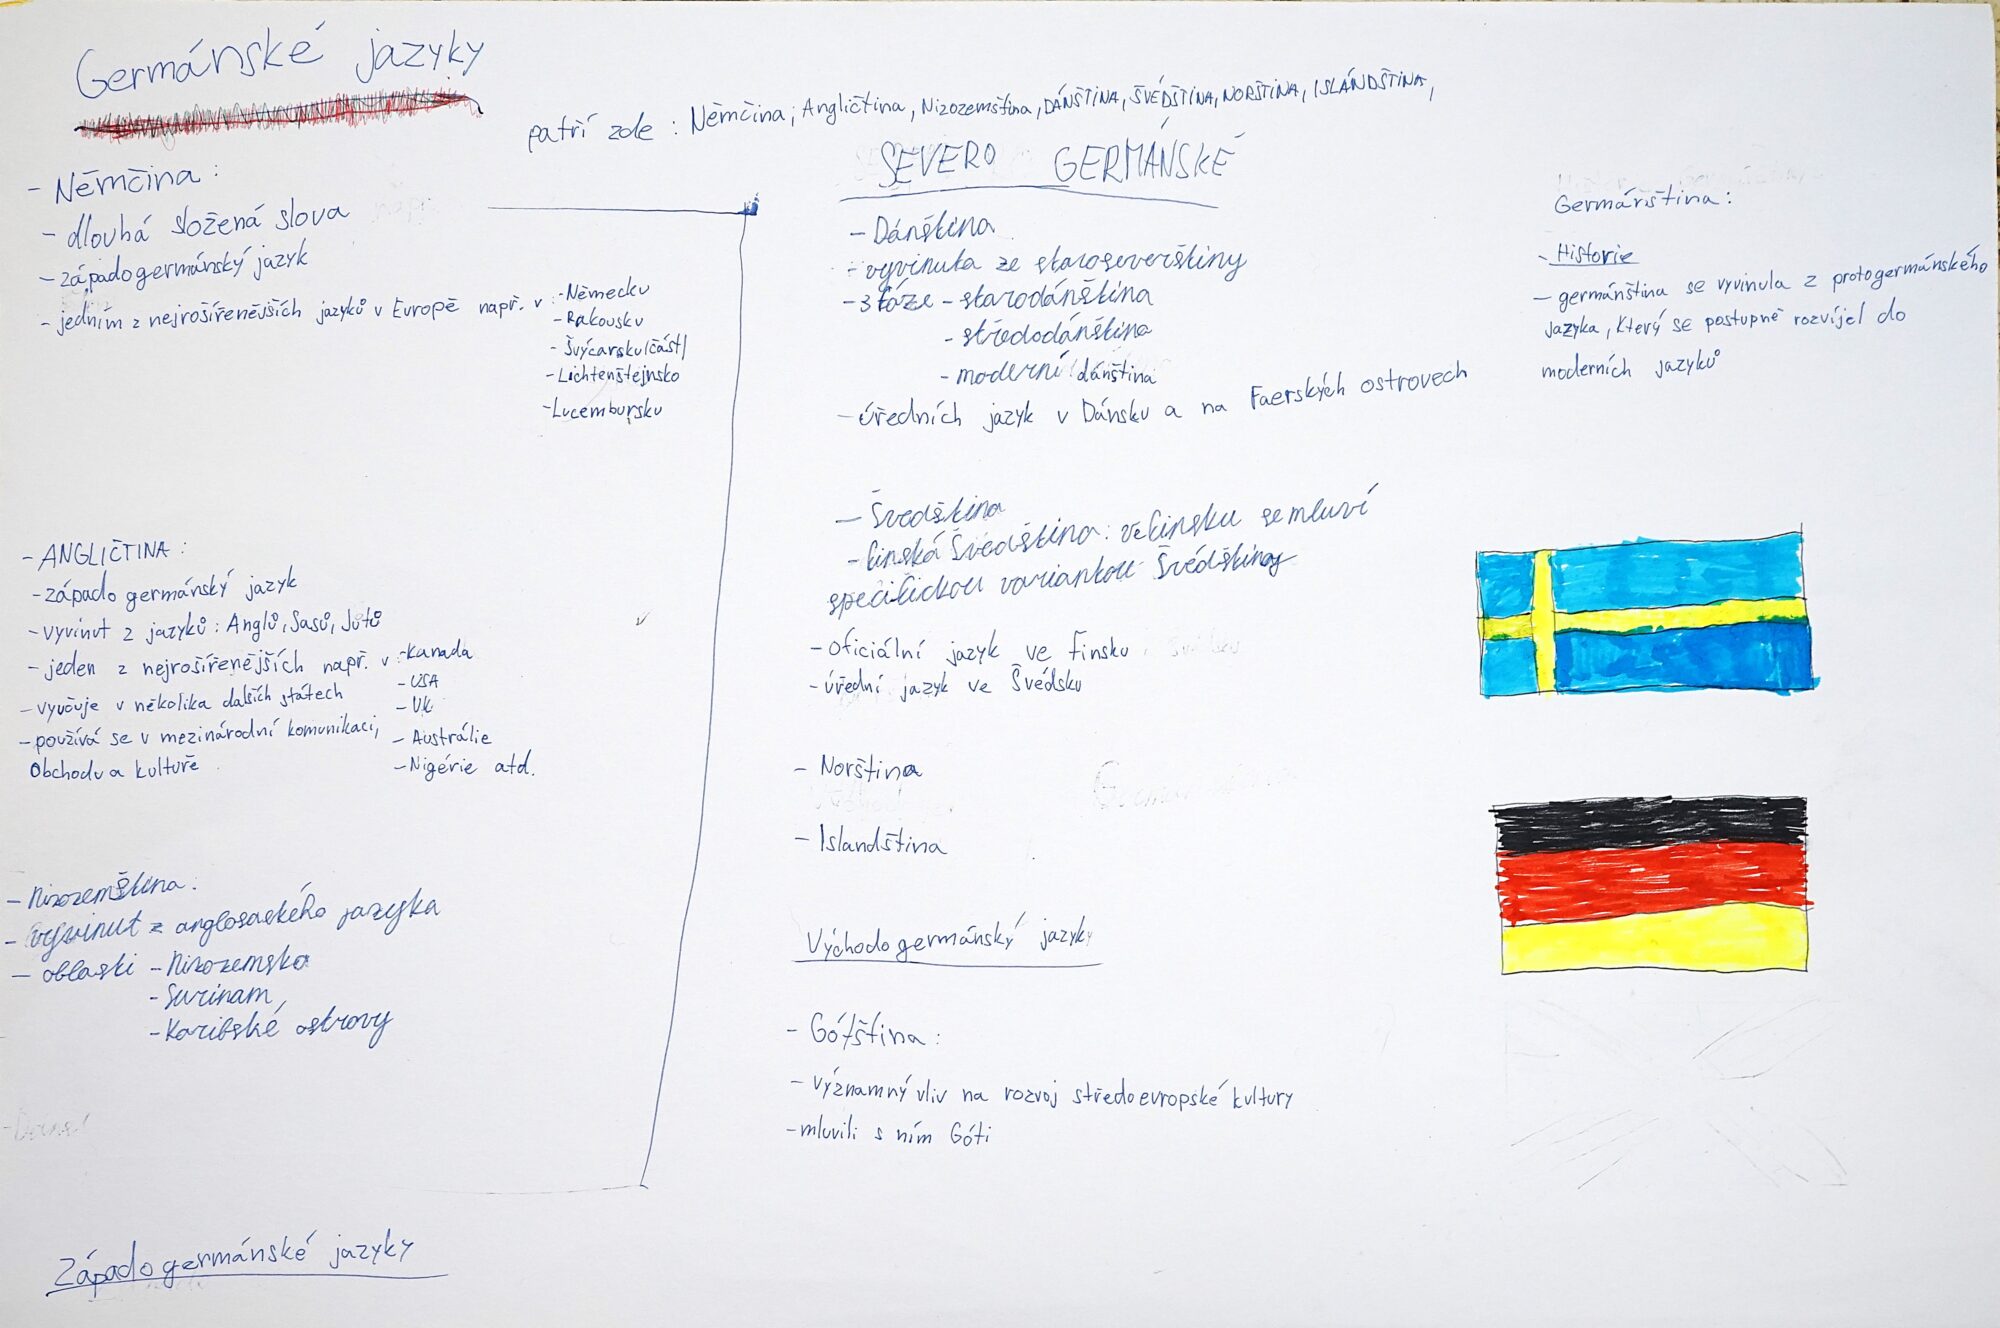 Germánské jazyky
patří zde : Němčina, Angličtina, Nizozemština, DÁNŠTINA, ŠVÉDŠTINA, NORŠTINA, ISLÁNDŠTINA,
- Němčina :
- dlouhá složená slova
- západogermánský jazyk
- jedním z nejrošířenějších jazyků v Evropě např. v :
- Německu
- Rakousku
- Švýcarsku(část)
- Lichtenštejnsko
- Lucembursku
- ANGLIČTINA :
- západo germánský jazyk
- vyvinut z jazyků : Anglů, Sasů, Jutů
- jeden z nejrošířenějších např. v :
- Kanada
- USA
- UK
- Austrálie
- Nigérie atd.
- vyučuje v několika dalších státech
- používá se v mezinárodní komunikaci,
Obchodu a kultuře
- Nizozemština :
- vyvinut z anglosaského jazyka
- oblasti - Nizozemska
- Surinam
- Karibské ostrovy
Západo germánské jazyky
SEVERO GERMÁNSKÉ
- Dánština
- vyvinuta ze staroseverštiny
- 3 fáze - starodánština
- středodánština
- moderní dánština
- úředních jazyk v Dánsku a na Faerských ostrovech
- Švédština
- finská Švédština : večinsku se mluví
specifickou variantou Švédštiny
- oficiální jazyk ve Finsku
- úřední jazyk ve Švédsku
- Norština
- Islandština
Východo germánský jazyky
- Gótština :
- významný vliv na rozvoj středoevropské kultury
- mluvili s ním Góti
Germánština :
- Historie
- germánština se vyvinula z protogermánského
jazyka, který se postupně rozvíjel do
moderních jazyků